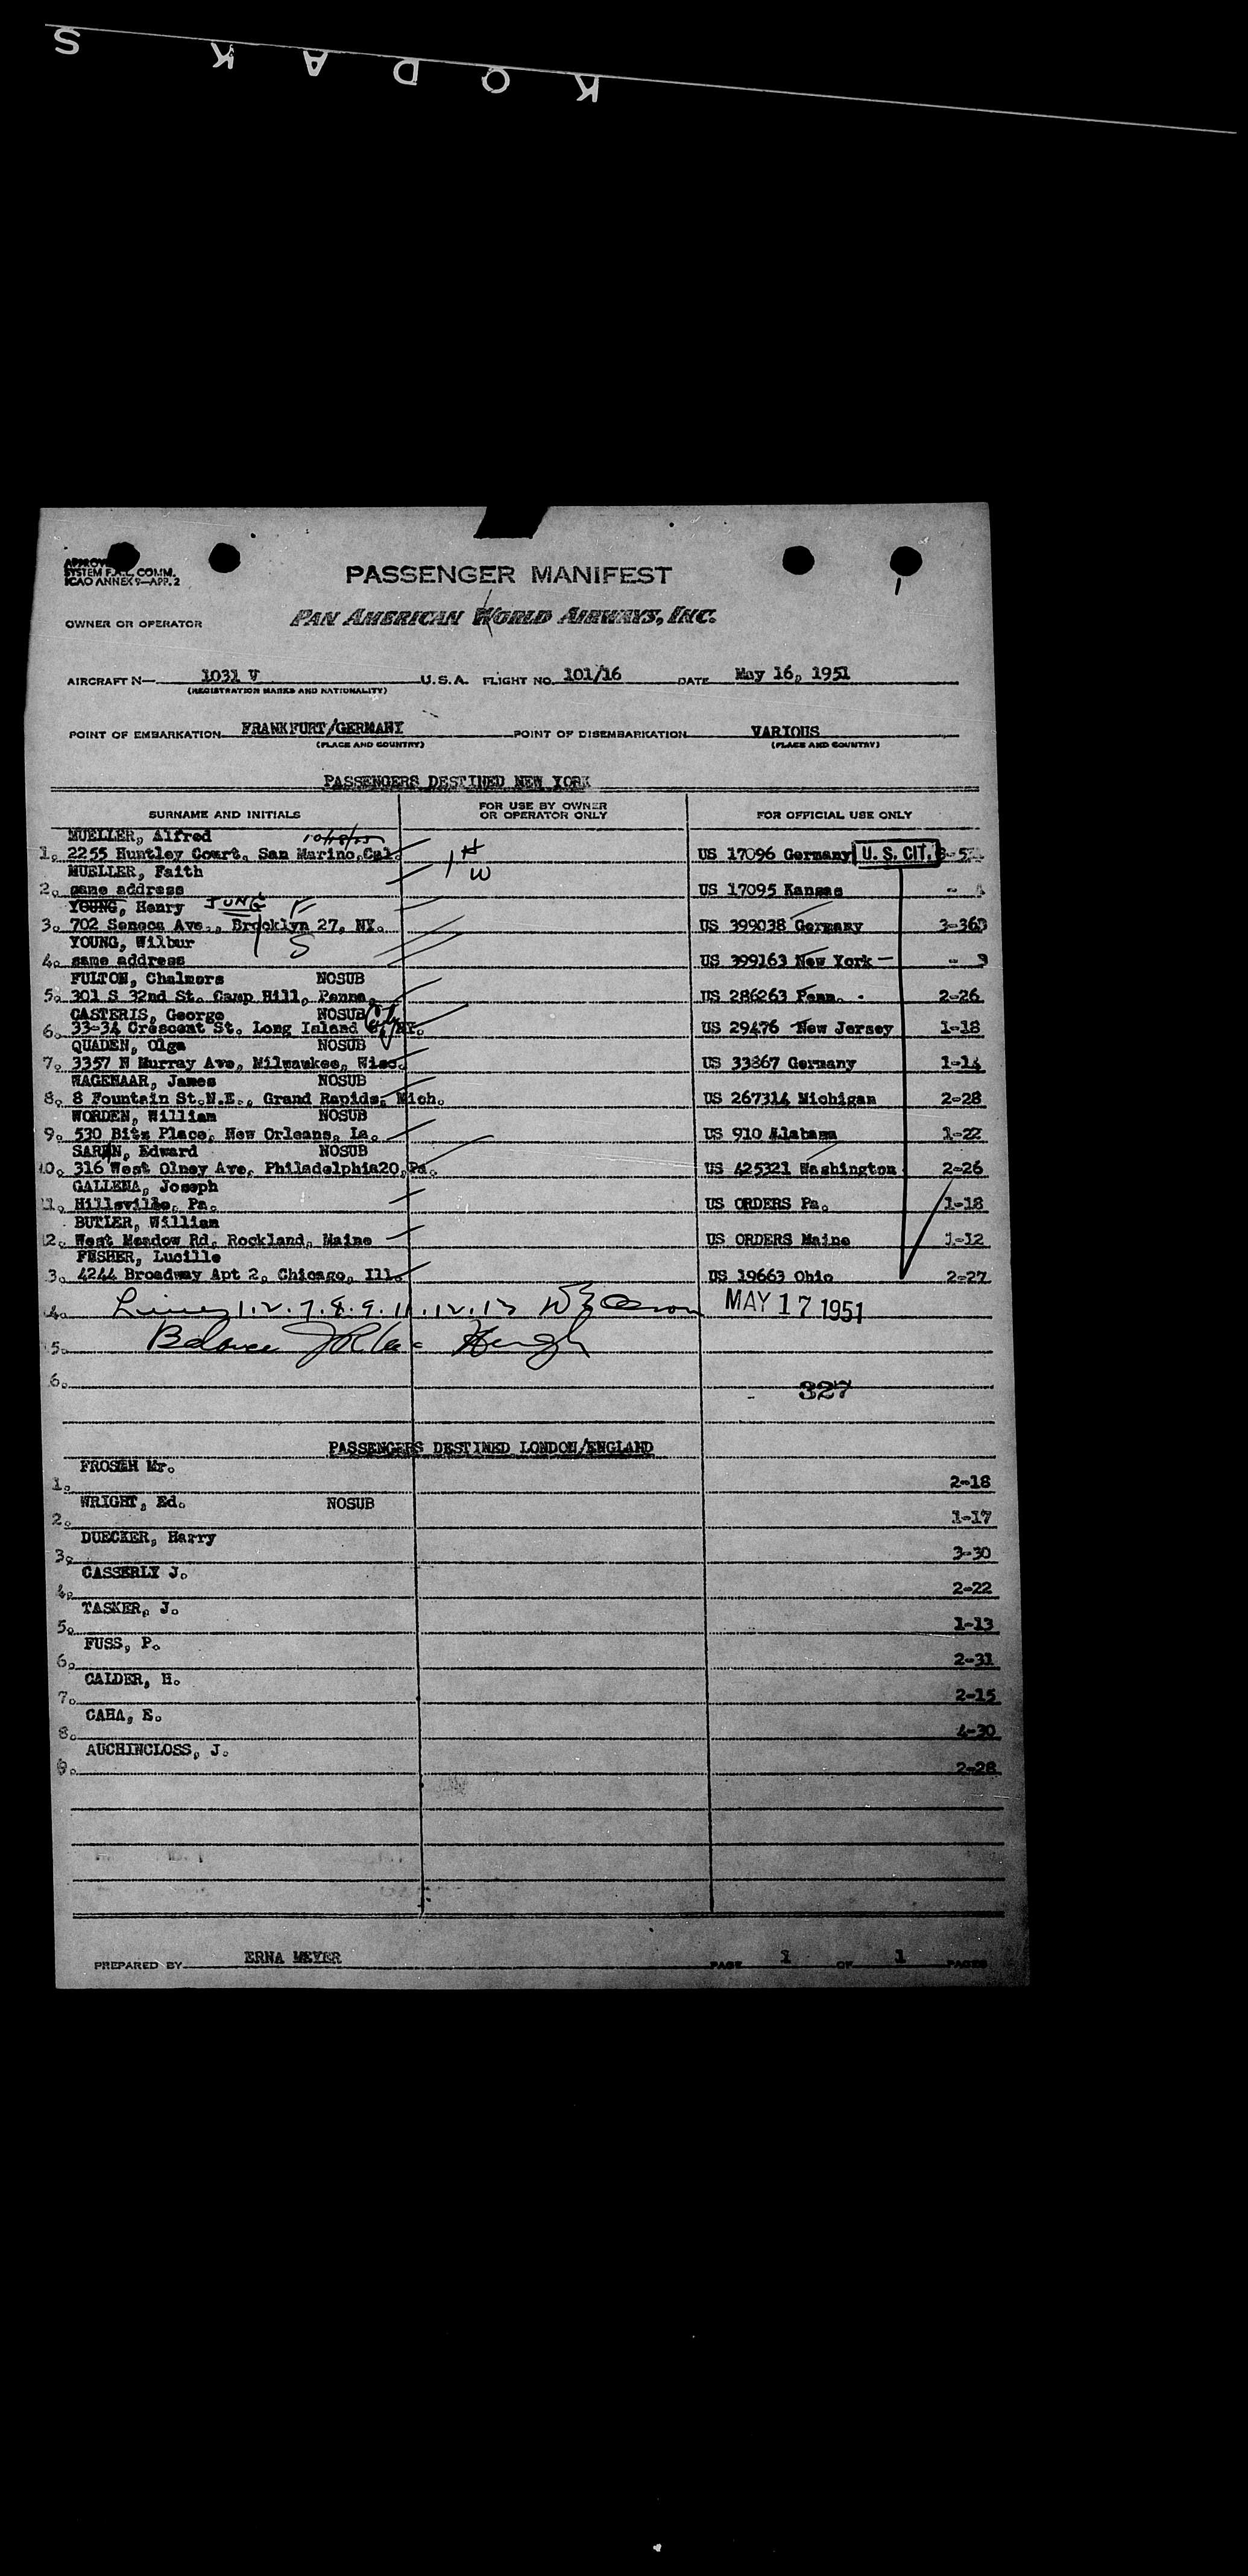 KODAK S
APPROVE
SYSTEM F.A.L. COMM.
ICAO ANNEX 9—APP. 2
PASSENGER MANIFEST
OWNER OR OPERATOR PAN AMERICAN WORLD AIRWAYS, INC.
AIRCRAFT N— 1031 V U.S.A. FLIGHT NO. 101/16 DATE May 16, 1951
(REGISTRATION MARKS AND NATIONALITY)
POINT OF EMBARKATION FRANKFURT/GERMANY POINT OF DISEMBARKATION VARIOUS
(PLACE AND COUNTRY) (PLACE AND COUNTRY)
PASSENGERS DESTINED NEW YORK
SURNAME AND INITIALS FOR USE BY OWNER OR OPERATOR ONLY FOR OFFICIAL USE ONLY
MUELLER, Alfred
1. 2255 Huntley Court, San Marino,Cal. H US 17096 Germany U. S. CIT.
MUELLER, Faith W
2. same address US 17095 Kansas
YOUNG, Henry JUNG F
3. 702 Seneca Ave., Brooklyn 27, NY. US 399038 Germany
YOUNG, Wilbur S
4. same address US 399163 New York
FULTON, Chalmers NOSUB
5. 301 S 32nd St. Camp Hill, Penna. US 286263 Penn. 2-26
CASTERIS, George NOSUB
6. 33-34 Crescent St. Long Island NY. US 29476 New Jersey 1-18
QUADEN, Olga NOSUB
7. 3357 N Murray Ave, Milwaukee, Wisc. US 33867 Germany 1-14
WAGENAAR, James NOSUB
8. 8 Fountain St.N.E., Grand Rapids, Mich. US 267314 Michigan 2-28
WORDEN, William NOSUB
9. 530 Bitz Place, New Orleans, La. US 910 Alabama 1-22
Edward NOSUB
10. 316 West Olney Ave, Philadelphia20,Pa. US 425321 Washington 2-26
GALLENA, Joseph
11. Hillsville, Pa. US ORDERS Pa. 1-18
BUTLER, William
12. West Meadow Rd, Rockland, Maine US ORDERS Maine 1-12
FESHER, Lucille
13. 4244 Broadway Apt 2, Chicago, Ill. US 19663 Ohio 2-27
14. Lines 1.2.7.8.9.11.12.13 MAY 17 1951
15. Balance
16. 327
PASSENGERS DESTINED LONDON/ENGLAND
FROSEH Mr.
1. 2-18
WRIGHT, Ed. NOSUB
2. 1-17
DUECKER, Harry
3. 3-30
CASSERLY J.
4. 2-22
TASKER, J.
5. 1-13
FUSS, P.
6. 2-31
CALDER, H.
7. 2-15
CAHA, E.
8. 4-30
AUCHINCLOSS, J.
9. 2-28
PREPARED BY ERNA MEYER PAGE 1 OF 1 PAGES